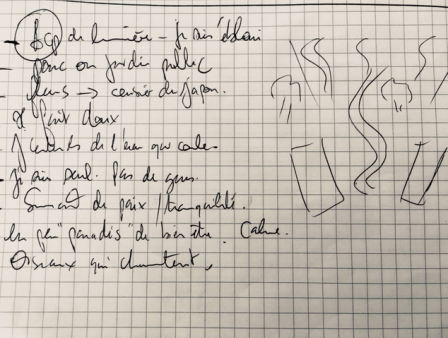 - Bcp de lumière - je suis ébloui
- parc ou jardin public
- fleurs → cerisier du Japon.
il fait doux
j'entends de l'eau qui coule
- je suis seul. Pas de gens.
- Sentiment de paix / tranquilité.
Un peu "paradis" de bien être. Calme.
Oiseaux qui chantent,